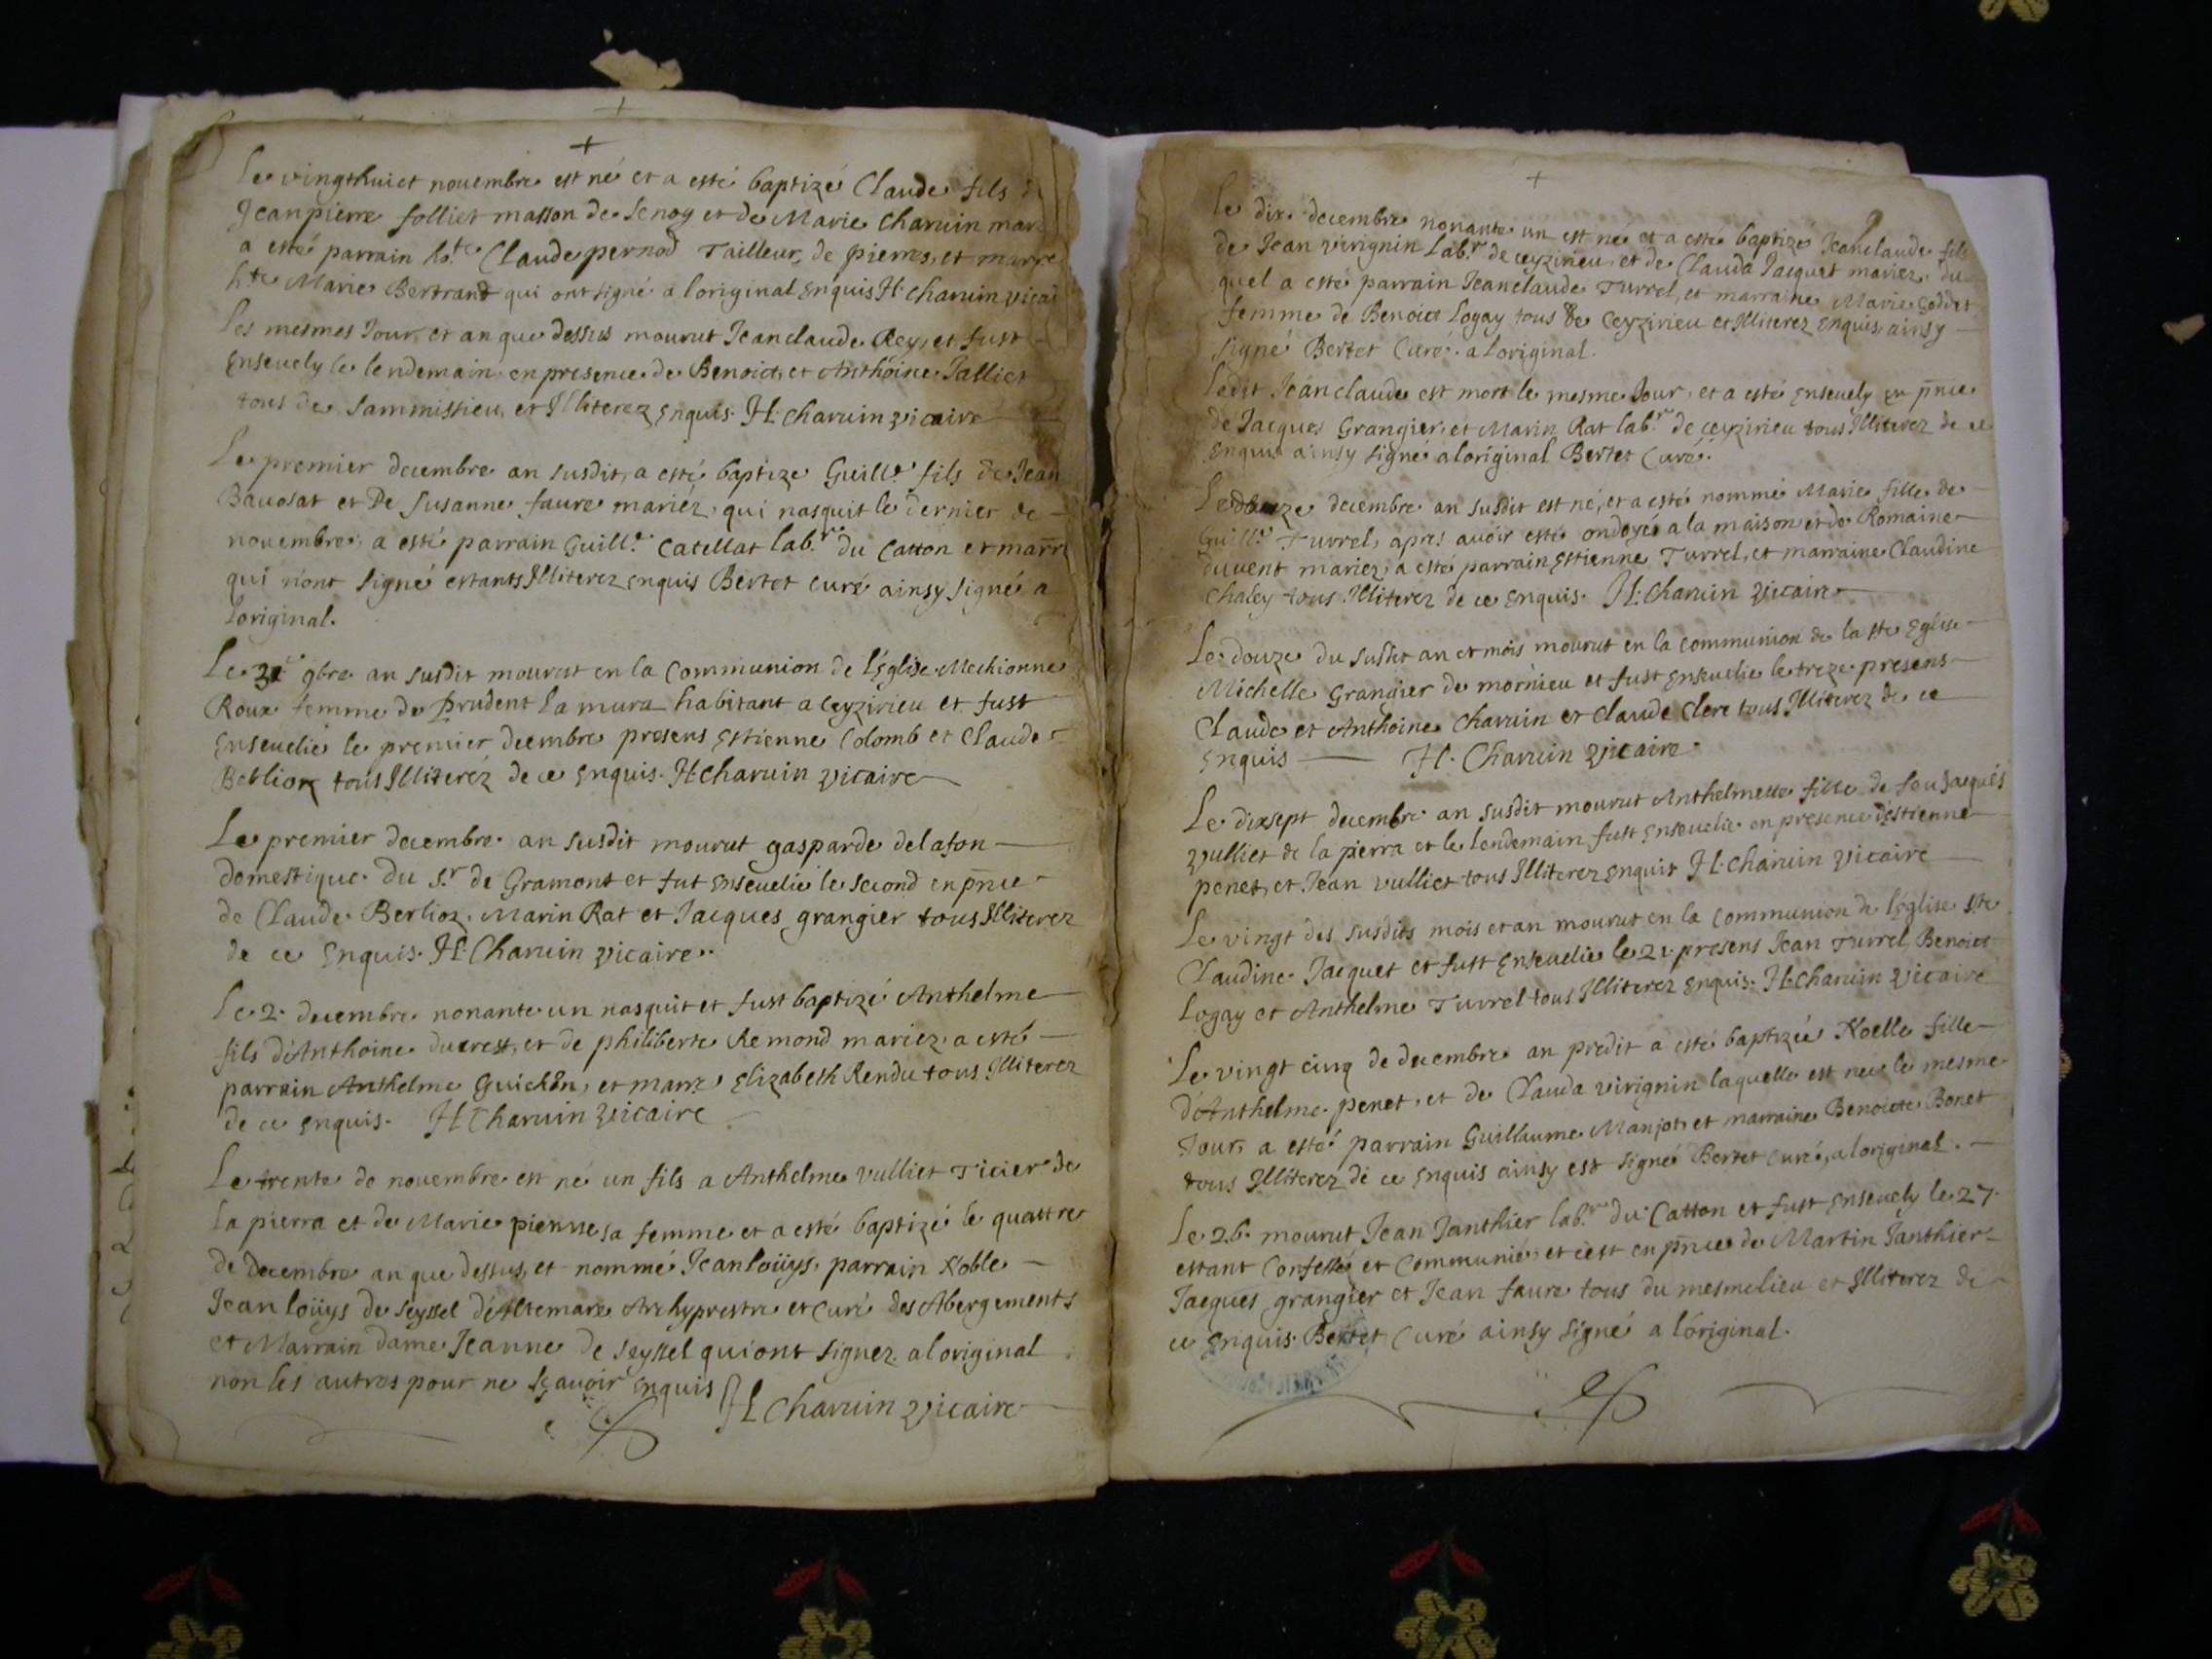 Le vingthuict nouembre est né et a esté baptizé Claude fils de
Jeanpierre folliet masson de Senoy et de Marie Charuin mar
a esté parrain h.te Claude pernod Tailleur de pierres, et marre
h.te Marie Bertrand qui ont signé a loriginal enquis H. Charuin vicai
les mesmes Jour, et an que dessus mourut Jeanclaude Rey, et fust
enseuely le lendemain en presence de Benoict, et Anthoine Jalliet
tous de Sammissieu, et Illiterez enquis. H. Charuin vicaire
Le premier decembre an susdit, a esté baptize Guill.e fils de Jean
Bauosat et De Susanne faure mariez, qui nasquit le dernier de
nouembre, a esté parrain Guill.e Catellat lab.r du Catton et marr
qui n'ont signé estants Illiterez enquis Bertet curé ainsy signé a
loriginal.
Le 9bre an susdit mourut en la Communion de léglise Mechionne
Roux femme de Prudent la mura habitant a Ceyzirieu et fust
enseuelie le premier decembre presens Estienne Colomb et Claude
Beblion tous Illiteréz de ce enquis. H. Charuin vicaire
Le premier decembre an susdit mourut gasparde delafon
domestique du s.r de Gramont et fut enseuelie le second en p̃nce
de Claude Berlioz, Marin Rat et Jacques grangier tous Illiterez
de ce enquis. H. Charuin vicaire.
Le 2. decembre nonante un nasquit et fust baptizé Anthelme
fils d'Anthoine ducrest, et de philiberte Remond mariez a esté
parrain Anthelme Guichon, et marr.e Elizabeth Rendu tous Illiterez
de ce enquis. H Charuin vicaire
Le trente de nouembre est né un fils a Anthelme vulliet Ticier de
la pierra et de Marie pienne sa femme et a esté baptizé le quattre
de decembre an que dessus, et nommé Jeanloüys, parrain Noble
Jean loüys de Seyssel d'Altemare Archyprestre et curé des Abergements
et Marrain dame Jeanne de Seyssel qui ont signez a loriginal
non les autres pour ne sçauoir enquis H Charuin vicaire
Le dix decembre nonante un est né et a esté baptizé Jeanclaude fils
de Jean virignin Lab.r de Ceyzirieu, et de Clauda Jacquet mariez, du
quel a esté parrain Jeanclaude Turrel, et marraine Marie Goddet
femme de Benoict Logay tous de Ceyzirieu et Illiterez enquis, ainsy
signé Bertet Curé a loriginal.
Ledit Jeanclaude est mort le mesme Jour, et a esté enseuely en p̃nce
de Jacques Grangier, et Marin Rat lab.r de Ceyzirieu tous Illiterez de ce
enquis ainsy signé a loriginal Bertet Curé.
Le douze decembre an susdit est né, et a esté nommé Marie fille de
Guill.e Turrel, apres auoir esté ondoyée a la maison et de Romaine
duuent mariez, a esté parrain Estienne Turrel, et marraine Claudine
Chaley tous Illiterez de ce enquis. H. Charuin vicaire
Le douze du susdit an et mois mourut en la communion de la s.te Eglise
Michelle Grangier de mornieu et fust enseuelie le treze presens
Claude et Anthoine Charuin et Claude Clerc tous Illiterez de ce
enquis H. Charuin vicaire.
Le dixsept decembre an susdit mourut Anthelmette fille de feu Jacques
vulliet de la pierra et le lendemain fust enseuelie en presence d'estienne
penet, et Jean vulliet tous Illiterez enquis H. Charuin vicaire
Le vingt des susdits mois et an mourut en la communion de léglise s.te
Claudine Jacquet et fust enseuelie le 21. presens Jean Turrel, Benoict
Logay et Anthelme Turrel tous Illiterez enquis. H. Charuin vicaire
Le vingt cinq de decembre an predit a esté baptizée Noelle fille
d'Anthelme penet, et de Clauda virignin laquelle est née le mesme
Jour, a esté parrain Guillaume Manjot et marraine Benoicte Bonet
tous Illiterez de ce enquis ainsy est signé Bertet curé, a loriginal.
Le 26. mourut Jean Janthier lab.r du Catton et fust enseuely le 27.
estant Confessé et Communié, et c'est en p̃nce de Martin Janthier
Jacques grangier et Jean faure tous du mesme lieu et Illiterez de
ce enquis. Bertet Curé ainsy signé a l'original.